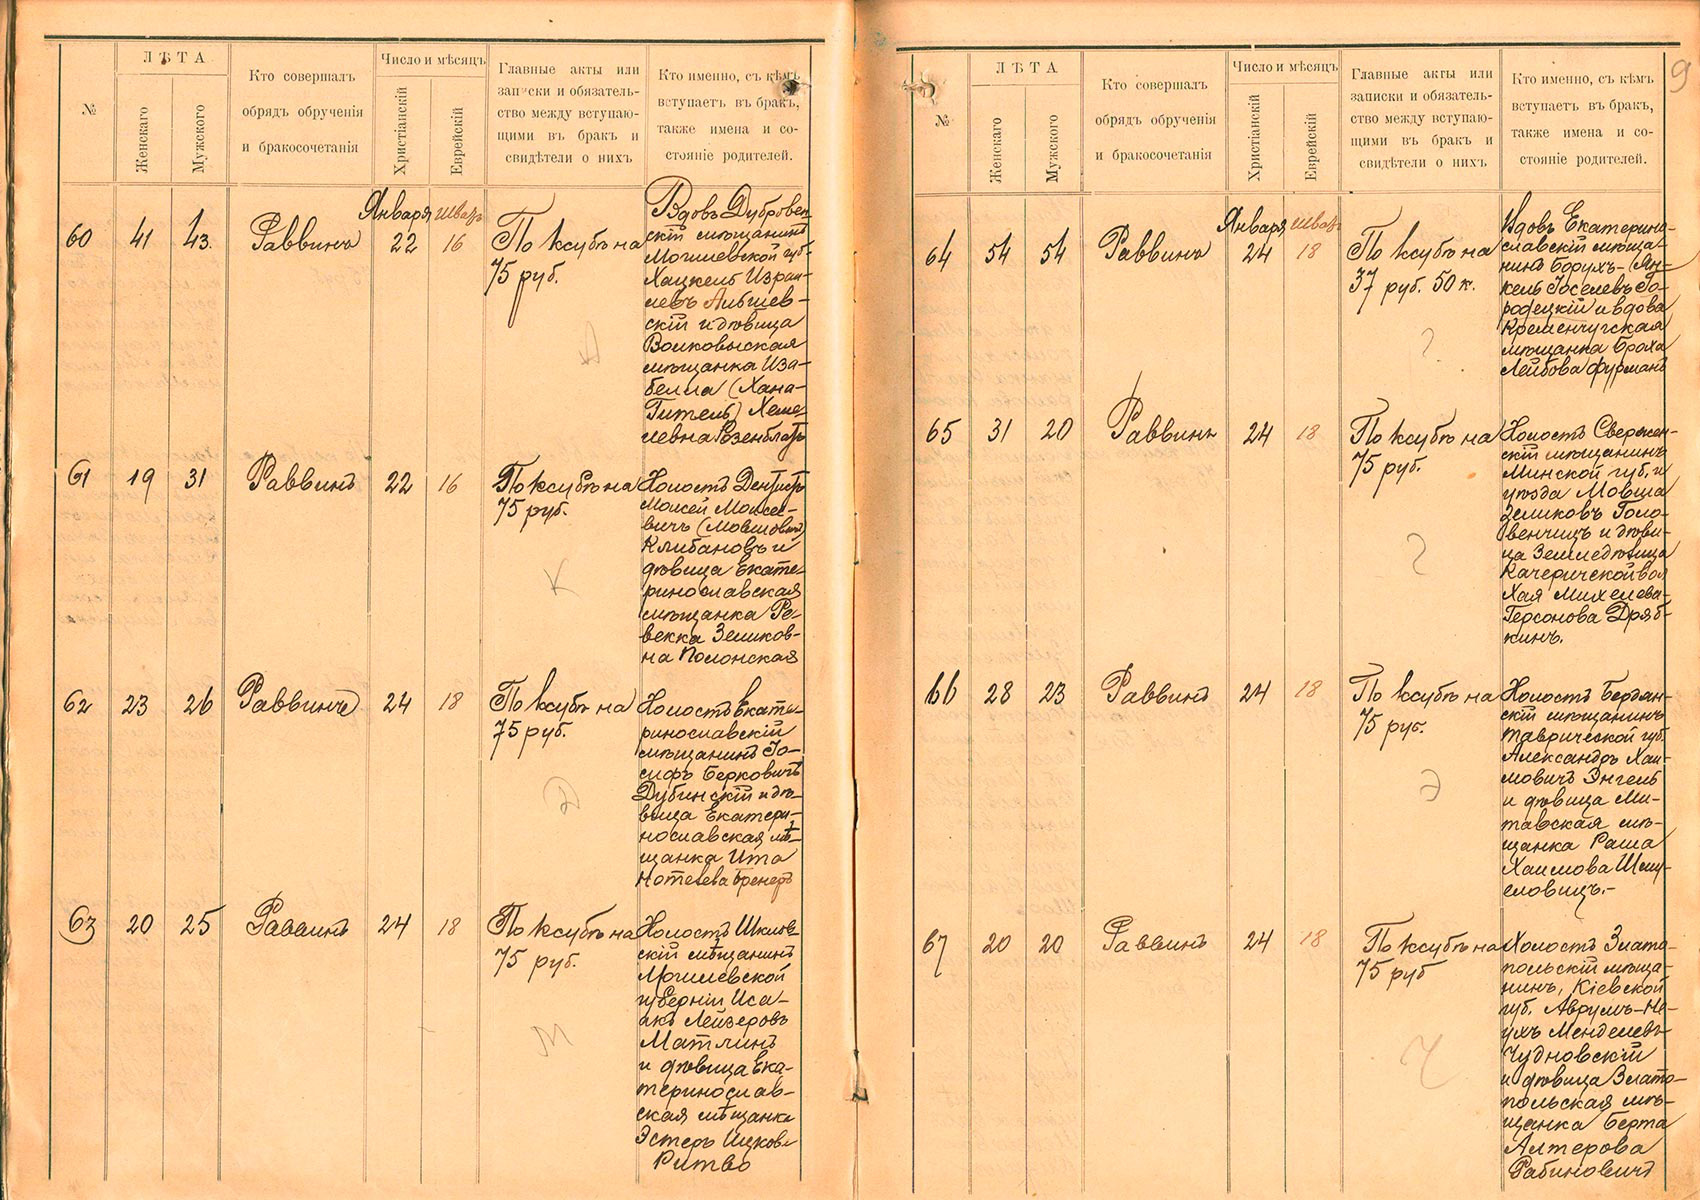 №
ЛѢТА
Женскаго
Мужского
Кто совершалъ
обрядъ обрученія
и бракосочетанія
Число и мѣсяцъ
Христіанскій
Еврейскій
Главные акты или
записки и обязатель-
ство между вступаю-
щими въ бракъ и
свидѣтели о нихъ
Кто именно, съ кѣмъ
вступаетъ въ бракъ,
также имена и со-
стояніе родителей.
60
41
43.
Раввинъ
Января
22
Шватъ
16
По ксубѣ на
75 руб.
Вдовъ Дубровен-
скій мѣщанинъ
Могилевской губ.
Хацкель Израи-
левъ
скій и дѣвица
Волковыская
мѣщанка Иза-
белла (Хана-
Гитель) Хеме-
левна Розенблатъ
61
19
31
Раввинъ
22
16
По ксубѣ на
75 руб.
К
Холостъ Дентистъ
Моисей Моисее-
вичъ (Мовшовичъ)
Клибановъ и
дѣвица Екате-
ринославская
мѣщанка Ре-
векка Зеликов-
на Полонская
62
23
26
Раввинъ
24
18
По ксубѣ на
75 руб.
Д
Холостъ Екате-
ринославскій
мѣщанинъ Іо-
сифъ Берковичъ
Дубинскій и дѣ-
вица Екатери-
нославская мѣ-
щанка Ита
Нотелева Бренеръ
63
20
25
Раввинъ
24
18
По ксубѣ на
75 руб.
М
Холостъ Шклов-
скій мѣщанинъ
Могилевской
губерніи Иса-
акъ Лейзеровъ
Матлинъ
и дѣвица Ека-
теринослав-
ская мѣщанка
Эстеръ Ицкова
Ритво
9
№
ЛѢТА
Женскаго
Мужского
Кто совершалъ
обрядъ обрученія
и бракосочетанія
Число и мѣсяцъ
Христіанскій
Еврейскій
Главные акты или
записки и обязатель-
ство между вступаю-
щими въ бракъ и
свидѣтели о нихъ
Кто именно, съ кѣмъ
вступаетъ въ бракъ,
также имена и со-
стояніе родителей.
64
54
54
Раввинъ
Января
24
Шватъ
18
По ксубѣ на
37 руб. 50 к.
Г
Вдовъ Екатерино-
славскій мѣща-
нинъ Борухъ-(Ян-
кель Іоселевъ Го-
родецкій и вдова
Кременчугская
мѣщанка Броха
Лейбова Фурманъ
65
31
20
Раввинъ
24
18
По ксубѣ на
75 руб.
Г
Холостъ Свержен-
скій мѣщанинъ
Минской губ. и
уѣзда Мовша
Зеликовъ Голо-
венчицъ и дѣви-
ца Земледѣлица
Качеричской вол
Хая Михелева-
Герсонова Дряб-
кинъ.
66
28
23
Раввинъ
24
18
По ксубѣ на
75 руб.
Э
Холостъ Бердян-
скій мѣщанинъ
Таврической губ.
Александръ Хаи-
мовичъ Энгель
и дѣвица Ми-
тавская мѣ-
щанка Раша
Хаимова Шму-
еловицъ.-
67
20
20
Раввинъ
24
18
По ксубѣ на
75 руб
Ч
Холостъ Злато-
польскій мѣща-
нинъ, Кіевской
губ. Аврумъ-Но-
ухъ Менделевъ
Чудновскій
и дѣвица Злато-
польская мѣ-
щанка Берта
Алтерова
Рабиновичъ